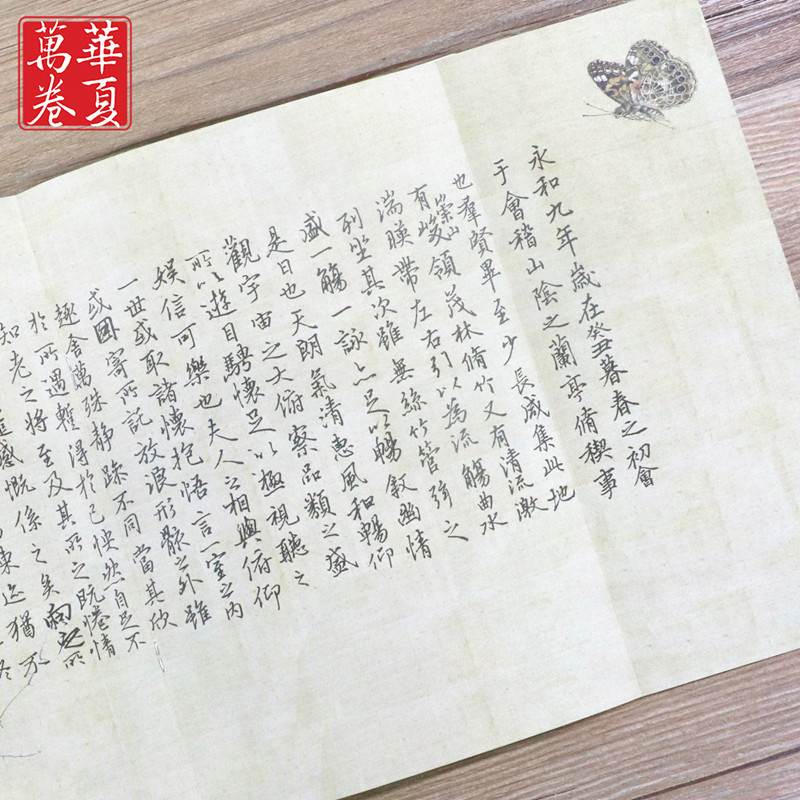 華夏
萬卷
永和九年歲在癸丑暮春之初會
于會稽山陰之蘭亭脩禊事
也羣賢畢至少長咸集此地
有崇山峻領茂林脩竹又有清流激
湍暎帶左右引以為流觴曲水
列坐其次雖無絲竹管弦之
盛一觴一詠亦足以暢敘幽情
是日也天朗氣清惠風和暢仰
觀宇宙之大俯察品類之盛
所以遊目騁懷足以極視聽之
娛信可樂也夫人之相與俯仰
一世或取諸懷抱悟言一室之內
或因寄所託放浪形骸之外雖
趣舍萬殊静躁不同當其欣
於所遇蹔得於己怏然自足不
知老之將至及其所之既惓情
遷感慨係之矣向之所
陳迹猶不